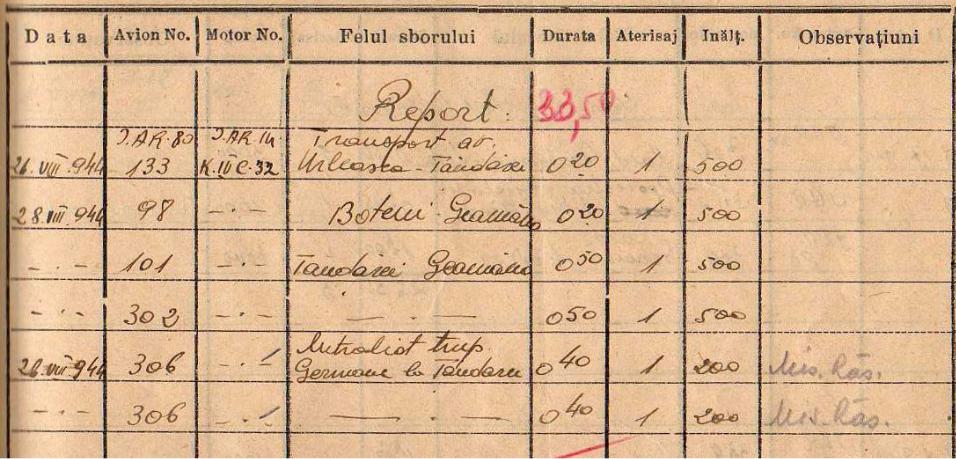 Data Avion No. Motor No. Felul sborului Durata Aterisaj Inălț. Observațiuni
Report: 33,50
I.AR.80 I.AR.14 Transport av.
26.VIII.944 133 K.IV C.32 Urleasca - Tăndărei 0 20 1 500
28.VIII.944 98 -·- Boteni - Geamăna 0 20 1 500
-·- 101 -·- Tandărei Geamăna 0 50 1 500
-·- 302 -·- — · — 0 50 1 500
Mitraliat trup.
26.VIII.944 306 -·- Germane la Tandarei 0 40 1 200 Mis. Răs.
-·- 306 -·- — · — 0 40 1 200 Mis. Răs.